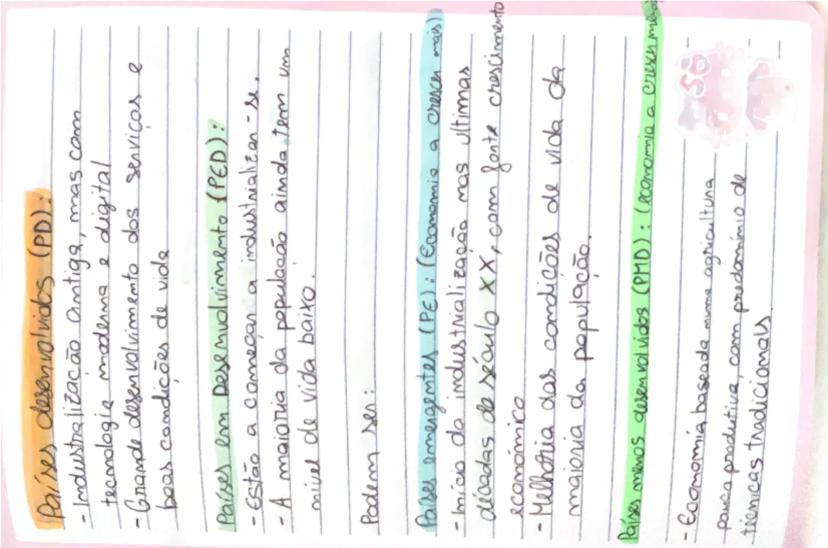 Países desenvolvidos (PD):
- Industralização antiga, mas com
tecnologia moderna e digital
- Grande desenvolvimento dos serviços e
boas condições de vida
Países em Desenvolvimento (PED):
- Estão a começar a industrializar-se.
- A maioria da população ainda tem um
nível de vida baixo.
Podem ser:
Países emergentes (PE): (Economia a crescer mais)
- Início da industrialização nas últimas
décadas do século XX, com forte crescimento
económico
- Melhoria das condições de vida da
maioria da população.
Países menos desenvolvidos (PMD): (economia a crescer menos)
- Economia baseada numa agricultura
pouco produtiva, com predomínio de
técnicas tradicionais